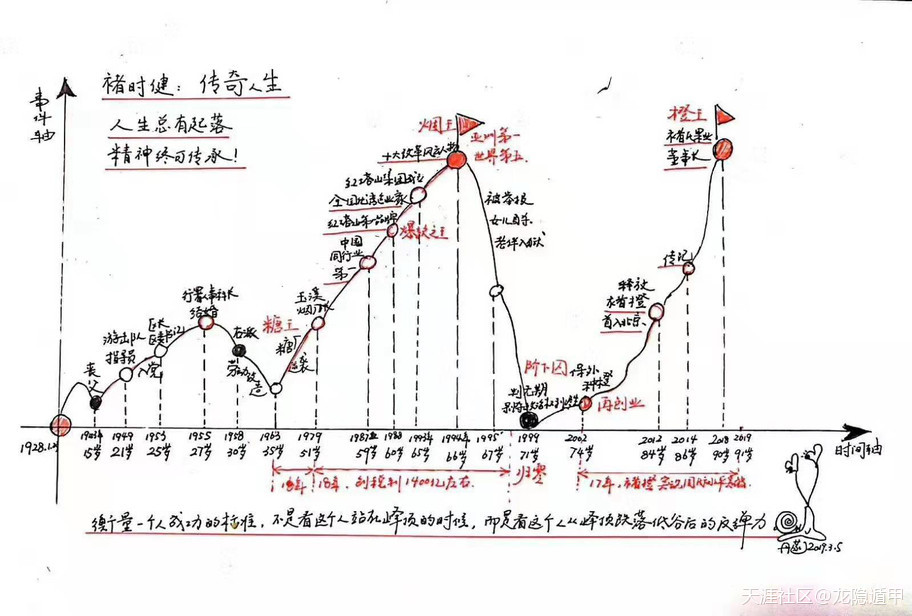 褚时健：传奇人生
人生总有起落
精神终可传承！
事件轴
丧父
游击队
指导员
入党
行署人事科长
结婚
右派
劳动改造
糖王
糖厂
玉溪
烟厂
中国
同行业
第一
红塔山第一品牌
红塔山集团
全国优秀企业家
十大改革风云人物
烟王
亚洲第一
世界第五
被举报
女儿自杀
老伴入狱
阶下囚
判无期
保外
种橙
再创业
释放
褚橙
首入北京
传记
橙王
褚氏果业
董事长
1928.1.
15岁
1949
21岁
1953
25岁
1955
27岁
1958
30岁
1963
35岁
1979
51岁
1987
59岁
1988
60岁
1993
65岁
1994
66岁
1995
67岁
1999
71岁
2002
74岁
2012
84岁
2014
86岁
2018
90岁
2019
91岁
时间轴
18年
18年，创税利1400亿左右.
归零
17年，褚橙
衡量一个人成功的标准，不是看这个人站在峰顶的时候，而是看这个人从峰顶跌落低谷后的反弹力
2019.3.5
天涯社区@龙隐遁甲